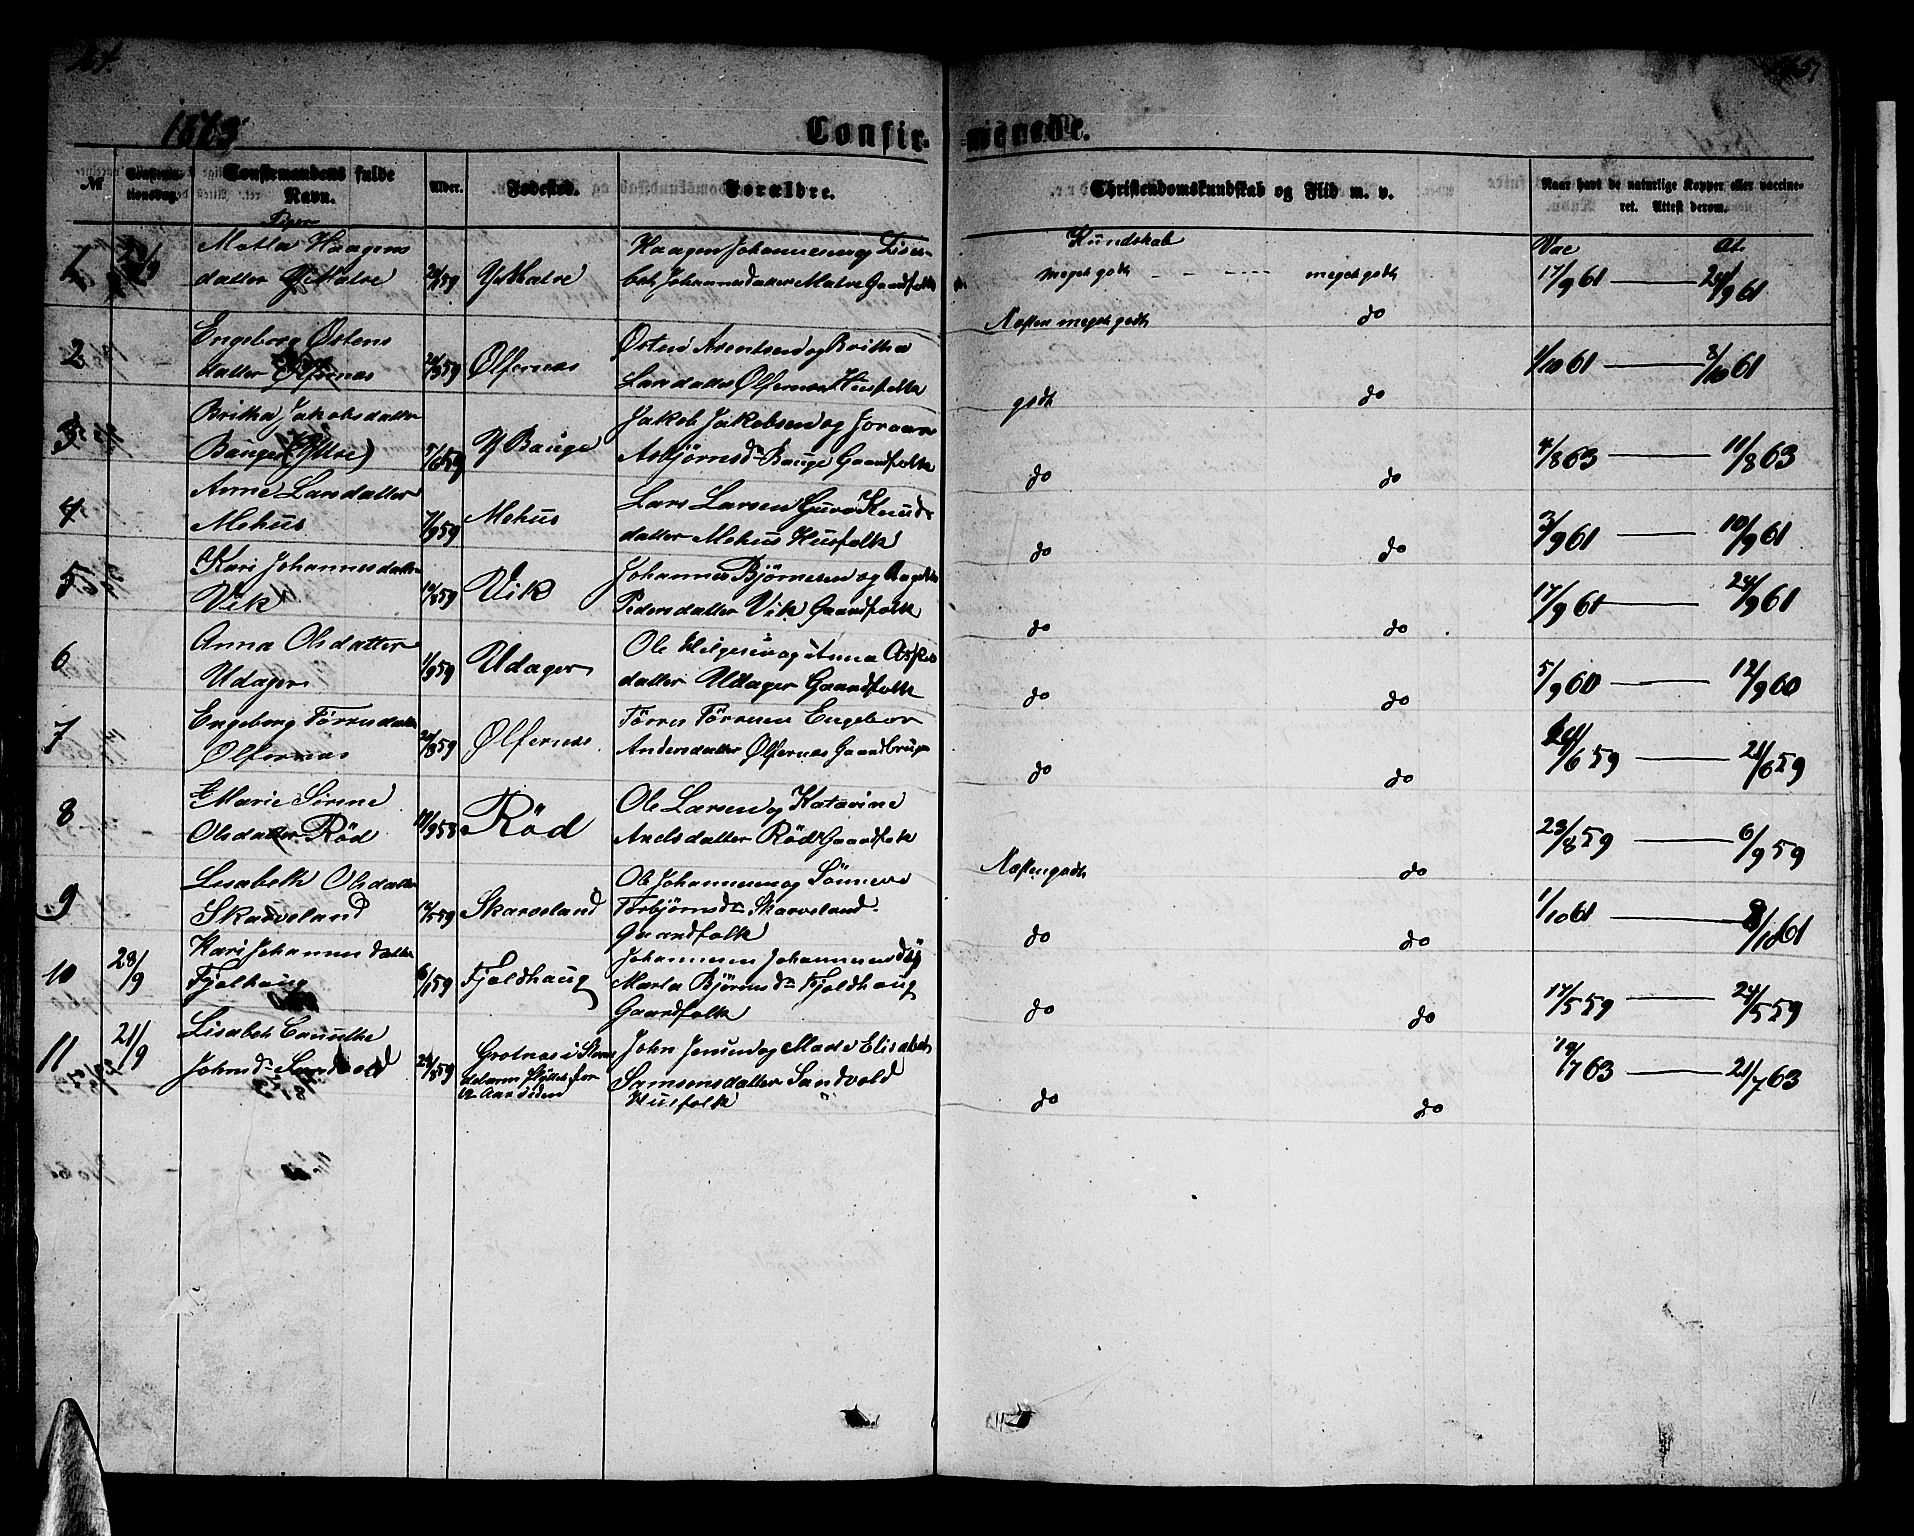 1873.
Confir-
mörnede.
№
Confirma-
tionsdag.
Confirmandens fulde
Navn.
Alder.
Fødested.
Forældre.
Christendomskundskab og Flid m. v.
Naar havt de naturlige Kopper eller vaccine-
ret. Attest derom.
Piger
Kundskab
Vac
At
1
Haagens
datter Y Matre
Y Matre
Haagen Johannesen og Lisa-
beth Johannesdatter Matre Gaardfolk
meget godt - - - - - meget godt
17/9 61 — 24/9 61
2
Engeborg Østens
datter Ølfernæs
Ølfernæs
Østen Arentsen og Britha
Larsdatter Ølfernæs Husfolk
Næsten meget godt do
1/10 61 — 8/10 61
3
Britha Jakobsdatter
Bauge (Yttre)
Y Bauge
Jakob Jakobsen og Joraan
Asbjørnsd Bauge Gaardfolk
godt do
4/8 63 — 11/8 63
4
Anne Larsdatter
Mehus
7/9 59
Mehus
Lars Larsen Guro Knuds
datter Mehus Husfolk
do do
3/9 61 — 10/9 61
5
Kari Johannesdatter
Vik
Vik
Johannes Bjørnesen og
Pedersdatter Vik Gaardfolk
do do
17/9 61 — 24/9 61
6
Anna Olsdatter
Udager
1/9 59
Udager
Ole Helgesen og Anna
datter Udager Gaardfolk
do do
5/9 60 — 12/9 60
7
Engeborg Tørresdatter
Ølfernæs
Ølfernæs
Tørres Tørresen Engebor
Andersdatter Ølfernæs Gaardbrug
do do
6 59 — 21/6 59
8
Marie Sørine
Olsdatter Röd
Röd
Ole Larsen og Katarine
Axelsdatter Röd Gaardfolk
do do
23/8 59 — 6/9 59
9
Lisabeth Olsdatter
Skarveland
Skarveland
Ole Johannesen og Sønneve
Torbjørnsd Skarveland
Gaardfolk
Næsten godt do
1/10 61 — 8/10 61
10
28/9
Kari Johannesdatter
Fjelhaug
6/1 59
Fjeldhaug
Johannes Johannessen og
Marta Bjørnsd Fjeldhaug
Gaardfolk
do do
17/5 59 — 24/5 59
11
21/9
Lisabet
Johnsd Sandvold
Grotnæs i
for
12 Aar siden
John Jensen og Elisabeth
Samsonsdatter Sandvold
Husfolk
do do
7 63 — 21/7 63
do do